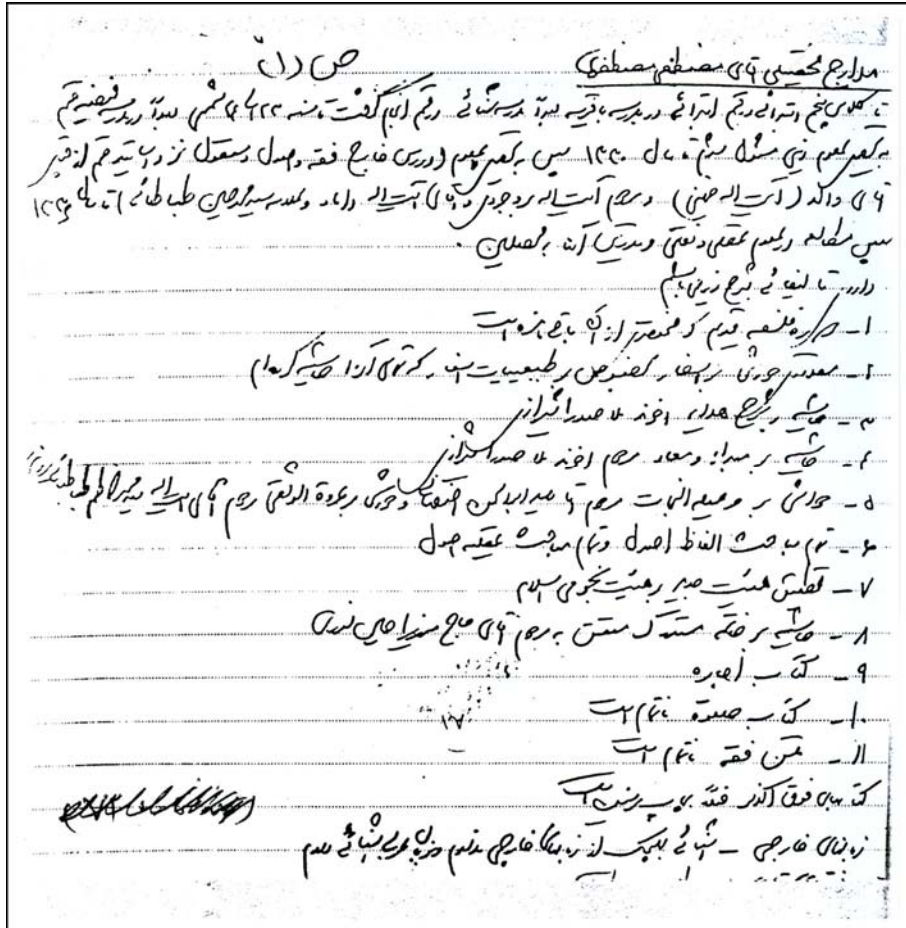 مدارج تحصیلی آقای مصطفی مصطفوی ص اول
تا کلاس پنجم ابتدائی در قم ابتدائی در مدرسه باقریه بعداً مدرسه سنائی در قم انجام گرفت سنه ۲۲ شمسی بعداً در مدرسه فیضیه قم
به تحصیل علوم دینی مشغول شدم تا سال ۱۳۳۰ سپس به تحصیل علوم (درس خارج فقه و اصول و معقول نزد اساتید قم از قبیل
آقای والد (آیت اله خمینی) و مرحوم آیت اله بروجردی و آقای آیت اله داماد و علامه سید محمد حسین طباطبائی) تا سال
سپس مطالعه در علوم عقلی و نقلی و تدریس آن به محصلین.
دارد. تألیفاتی بشرح زیر می باشم
۱- دوره فلسفه قدیم که مختصری از آن باقی مانده است
۲- حواشی بر اسفار بخصوص بر طبیعیات اسفار که تمامی آنرا حاشیه کرده ام
۳- حاشیه بر شرح هدایه آخوند ملا صدرا شیرازی
۴- حاشیه بر مبداء و معاد مرحوم آخوند ملا صدرا شیرازی
۵- حواشی بر وسیله النجات مرحوم آقا سید ابوالحسن اصفهانی و حواشی بر عروة الوثقی مرحوم آقای آیت اله سید محمد کاظم طباطبائی یزدی
۶- تمام مباحث الفاظ اصول و تمام مباحث عقلیه اصول
۷- تطبیق هیئت جدید بر هیئت نجومی اسلام
۸- حاشیه بر خاتمه مستدرک متعلق به مرحوم آقای حاج میرزا حسین نوری
۹- کتاب اجاره
۱۰- کتاب صلوة ناتمام است
۱۷
۱۱- متن فقه ناتمام است
کتابهای فوق الذکر فعلاً بچاپ نرسیده است
زبانهای خارجی - آشنائی بهیچیک از زبانهای خارجی ندارم و بزبان عربی آشنائی دارم